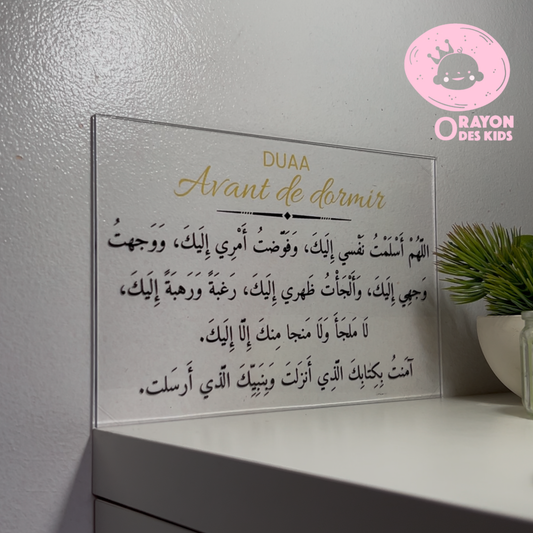 O RAYON
DES KIDS
DUAA
Avant de dormir
اللّهُمْ أَسْلَمْتُ نَفْسي إِلَيكَ، وَفَوَّضتُ أَمْرِي إِلَيكَ، وَوَجهتُ
وَجهِي إِلَيكَ، وَأَلْجَأْتُ ظَهري إِلَيكَ، رَغبَةً وَرَهبَةً إِلَيكَ،
لَا مَلجَأَ وَلَا مَنجا مِنكَ إِلّا إِلَيكَ.
آمَنتُ بِكِتابِكَ الَّذِي أَنزَلتَ وَبِنَبِيِّكَ الَّذي أَرسَلت.